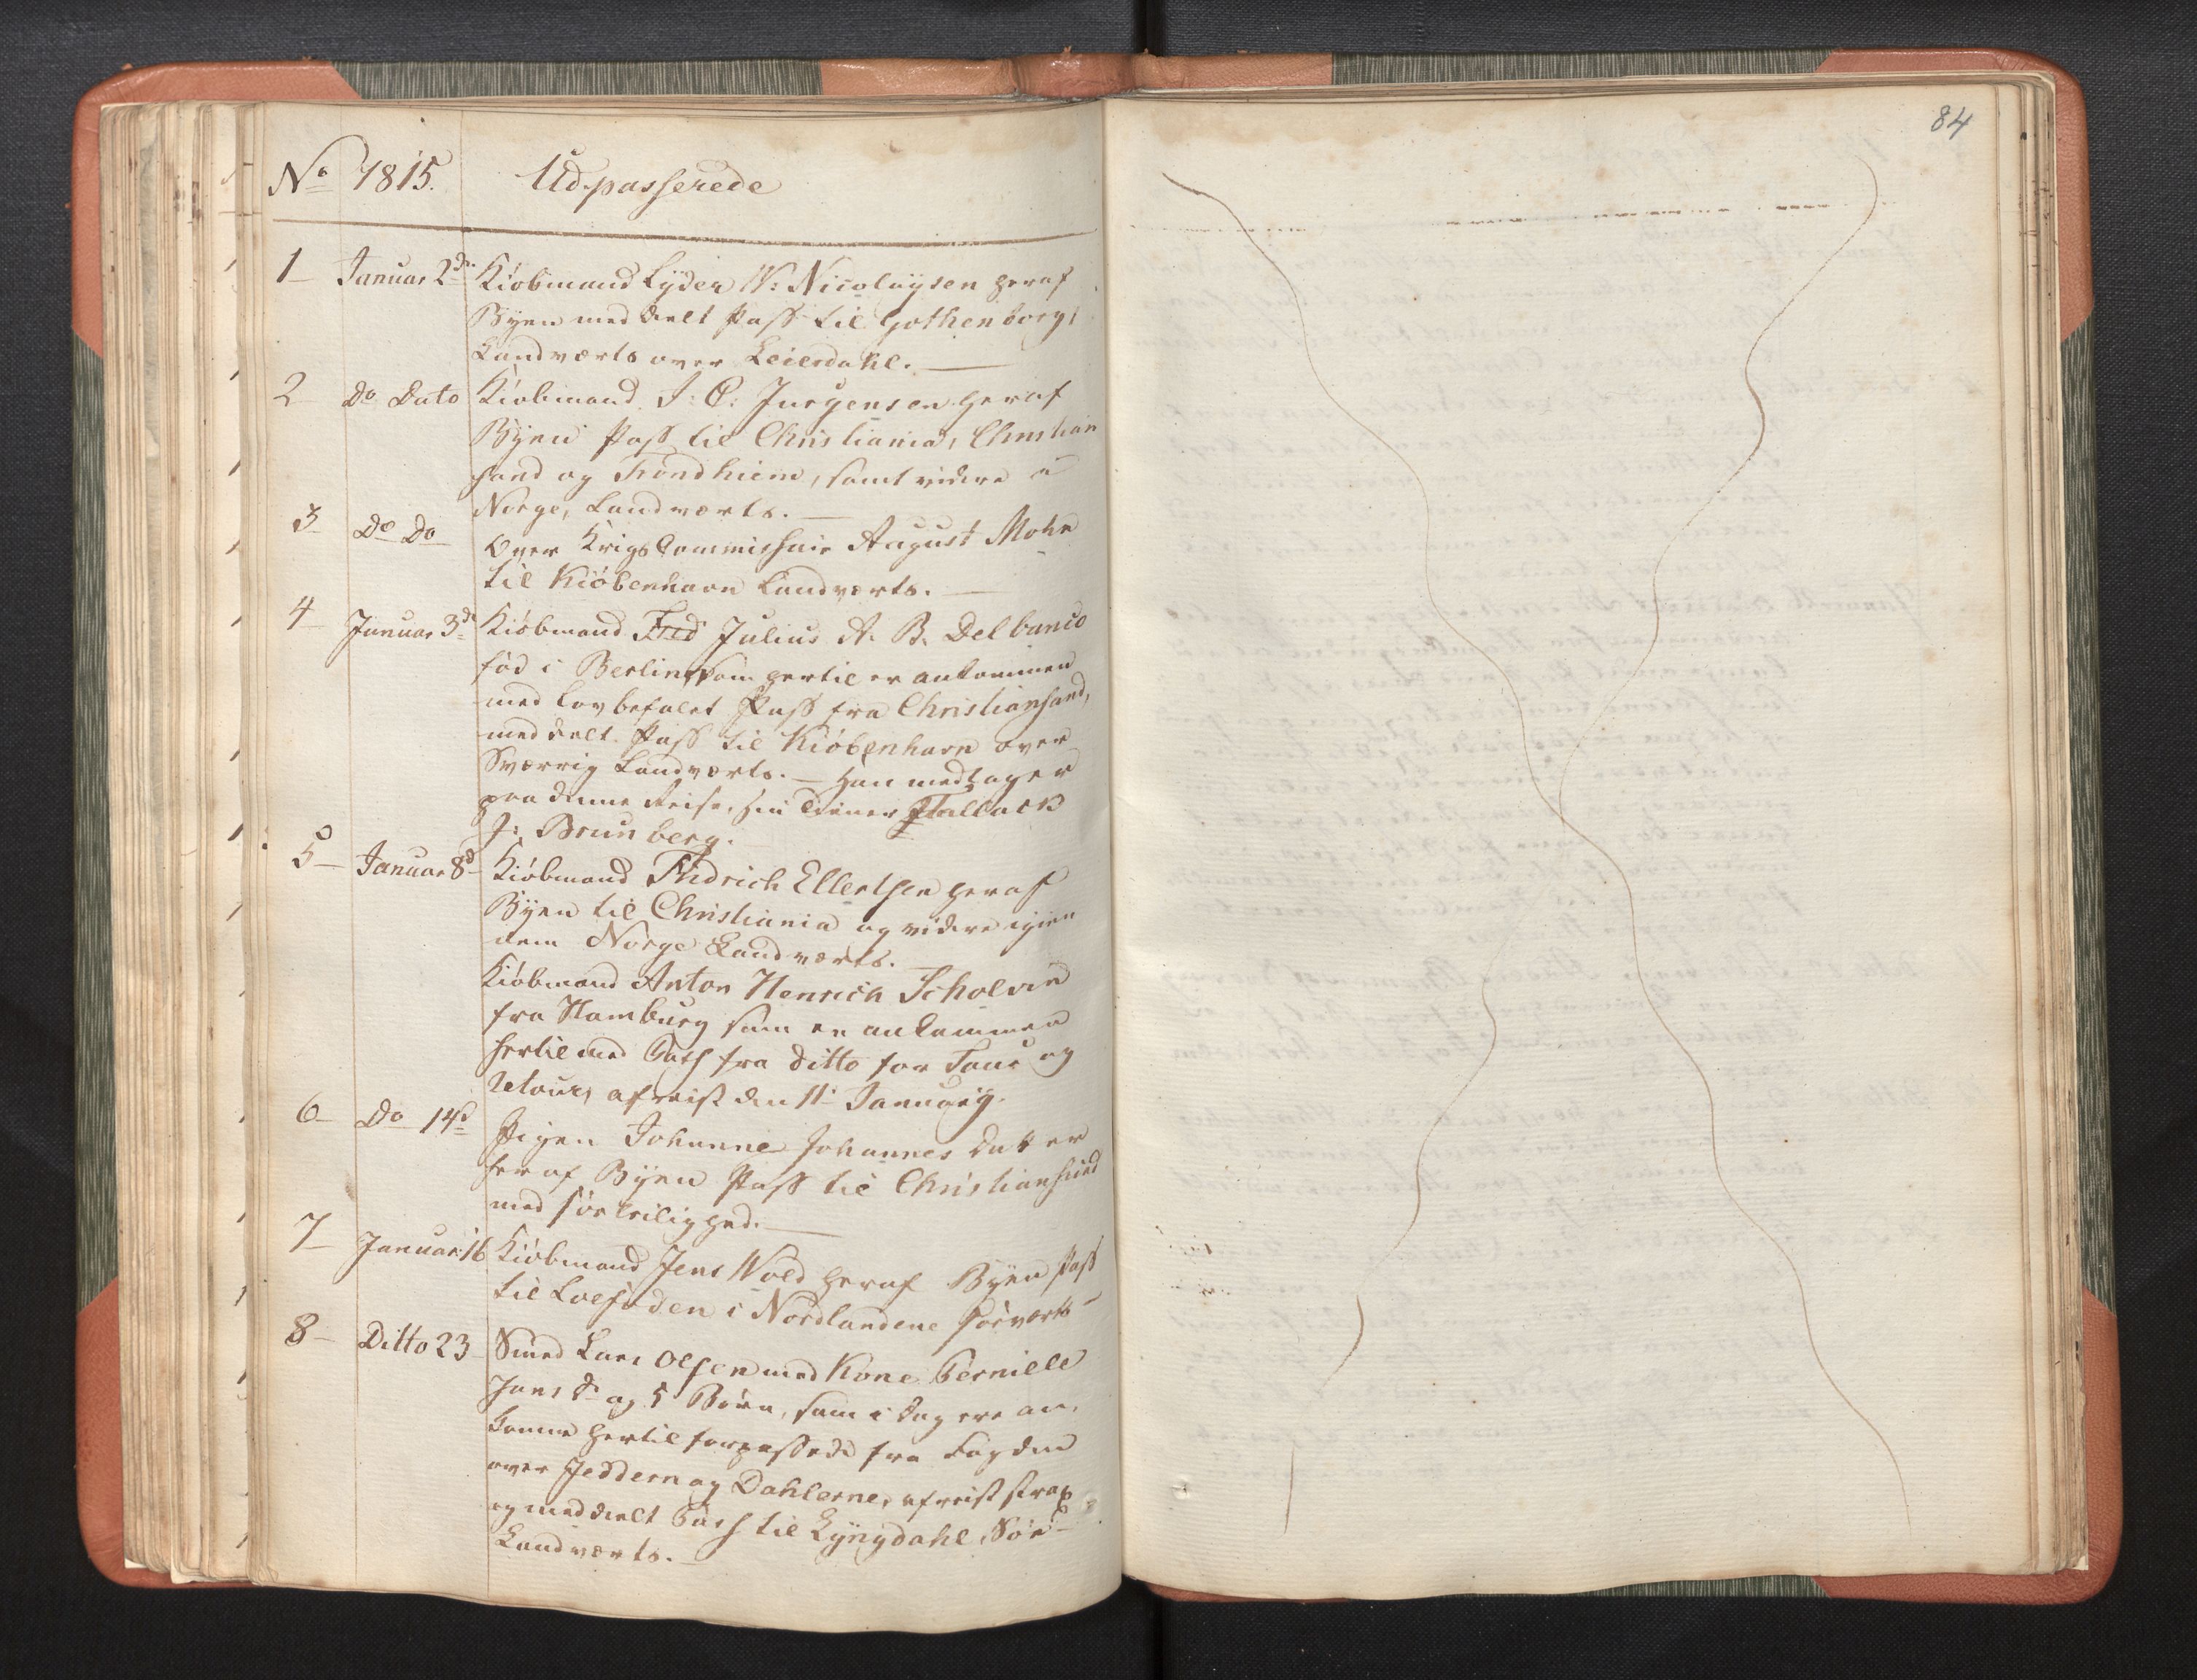 84
No 1815. Udpasserede
1 Januar 2de Kiöbmand Lyder W: Nicolaysen heraf
Byen meddeelt Pass til Gothenborg,
Landværts over Leierdahl.
2 Do Dato Kiöbmand J: C: Jurgensen heraf
Byen Pass til Christiania, Christian
sand og Trondhiem, samt videre i
Norge, Landværts.
3 Do Do Over Krigs Commissair August Mohr
til Kiöbenhavn Landværts.
4 Januar 3de Kiöbmand Fred Julius A. B. Delbanco
föd i Berlin, som hertil er ankommen
med lovbefalet Pass fra Christiansand,
meddeelt Pass til Kiöbenhavn over
Sverrig Landværts. – Han medtager
paa denne Reise, sin Tiener Hallack
J: Brunberg.
5 Januar 8d Kiöbmand Fridrich Ellertsen heraf
Byen til Christiania og videre igien
nem Norge Landværts.
Kiöbmand Anton Henrich Scholvin
fra Hamburg som er ankommen
hertil med Pass fra ditto for Tour og
Retour, afreist den 11 Januarij.
6 Do 14d Pigen Johanne Johannes Datter
her af Byen Pass til Christiansund
med söe leilighed.
7 Januar 16 Kiöbmand Jens Wold heraf Byen Pass
til Loefoden i Nordlandene söeværts
8 Ditto 23 Smed Lars Olsen med Kone Pernille
Jans dr og 5 Börn, som i dag ere an,
komne hertil forpassede fra Fogden
over Jeddern og Dahlerne, afreist strax
og meddeelt Pass til Lyngdahl Söe
Landværts.